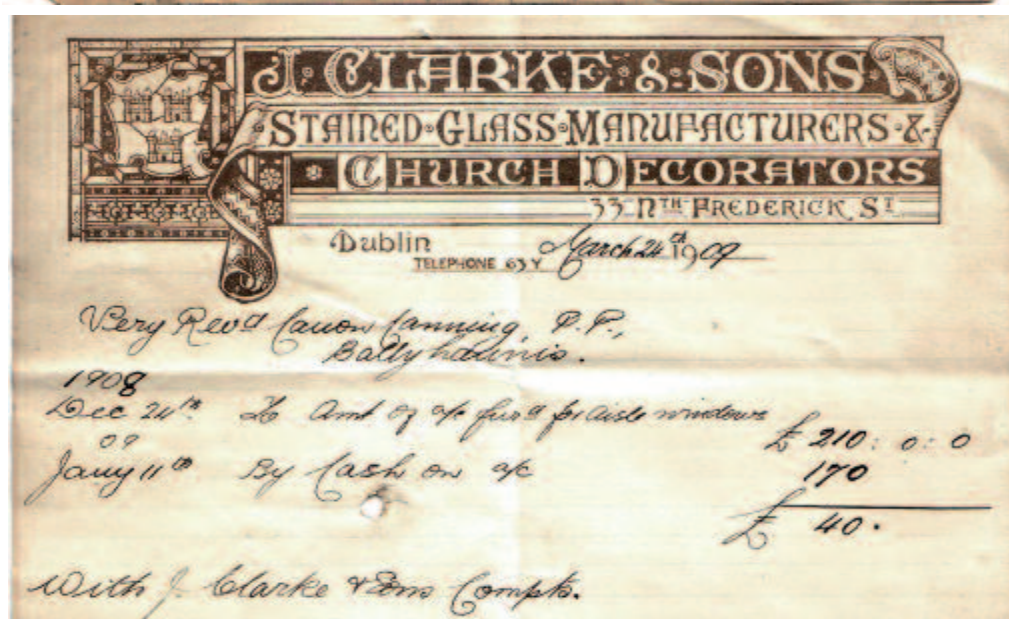 J. CLARKE & SONS
STAINED · GLASS · MANUFACTURERS · &
CHURCH DECORATORS
33 NTH FREDERICK, ST
Dublin March 24th 1909
TELEPHONE 63Y
Very Revd Canon Canning, P.P.,
Ballyhaunis.
1908
Dec 24th To Amt of a/c furd for aisle windows £ 210 : 0 : 0
09
Jany 11th By Cash on a/c 170
£ 40 .
With J. Clarke & Sons Compts.